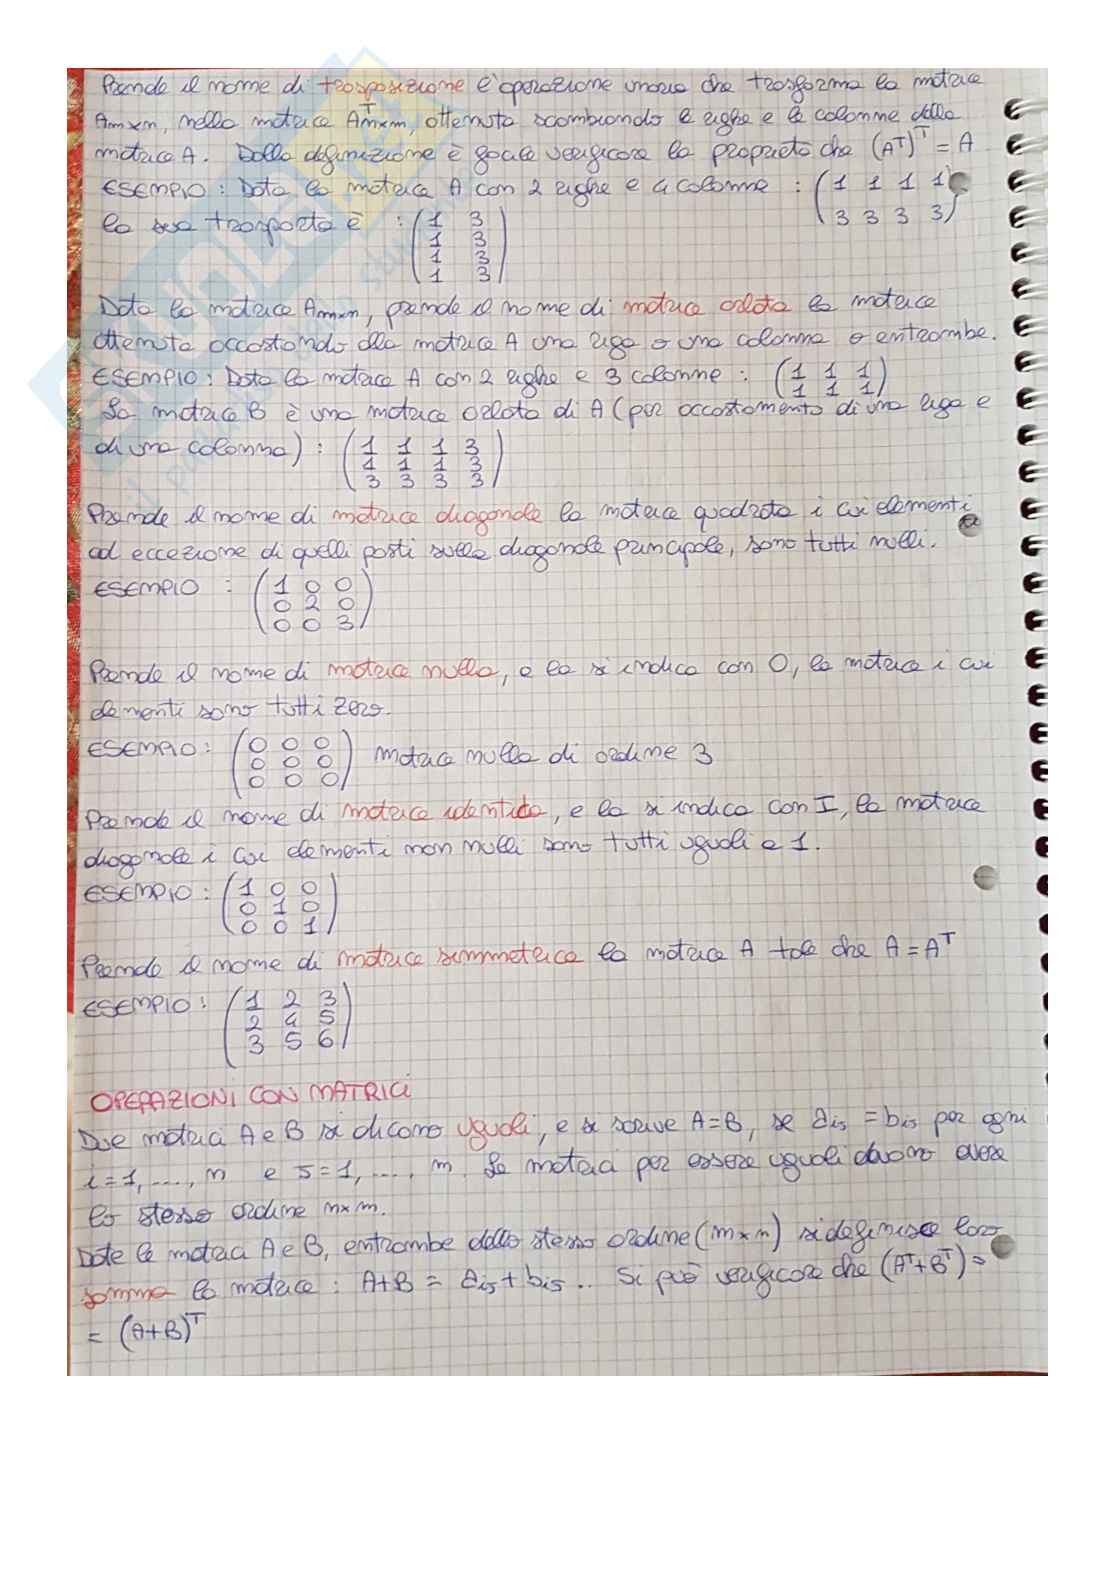 Prende il nome di trasposizione l'operazione unaria che trasforma la matrice
Amxn, nella matrice Aᵀnxm, ottenuta scambiando le righe e le colonne della
matrice A. Dalla definizione è facile verificare la proprietà che (Aᵀ)ᵀ = A
ESEMPIO : Data la matrice A con 2 righe e 4 colonne : (1 1 1 1
3 3 3 3)
la sua trasposta è : (1 3
1 3
1 3
1 3)
Data la matrice Amxn, prende il nome di matrice orlata la matrice
ottenuta accostando alla matrice A una riga o una colonna o entrambe.
ESEMPIO : Data la matrice A con 2 righe e 3 colonne : (1 1 1
1 1 1)
La matrice B è una matrice orlata di A (per accostamento di una riga e
di una colonna) : (1 1 1 3
1 1 1 3
3 3 3 3)
Prende il nome di matrice diagonale la matrice quadrata i cui elementi
ad eccezione di quelli posti sulla diagonale principale, sono tutti nulli.
ESEMPIO : (1 0 0
0 2 0
0 0 3)
Prende il nome di matrice nulla, e la si indica con O, la matrice i cui
elementi sono tutti zero.
ESEMPIO : (0 0 0
0 0 0
0 0 0) matrice nulla di ordine 3
Prende il nome di matrice identità, e la si indica con I, la matrice
diagonale i cui elementi non nulli sono tutti uguali a 1.
ESEMPIO : (1 0 0
0 1 0
0 0 1)
Prende il nome di matrice simmetrica la matrice A tale che A = Aᵀ
ESEMPIO : (1 2 3
2 4 5
3 5 6)
OPERAZIONI CON MATRICI
Due matrici A e B si dicono uguali, e si scrive A=B, se aij = bij per ogni
i=1, ...., n e j=1, ...., m. Le matrici per essere uguali devono avere
lo stesso ordine nxm.
Date le matrici A e B, entrambe dello stesso ordine (mxn) si definisce loro
somma la matrice : A+B = aij + bij .. Si può verificare che (Aᵀ+Bᵀ) =
= (A+B)ᵀ